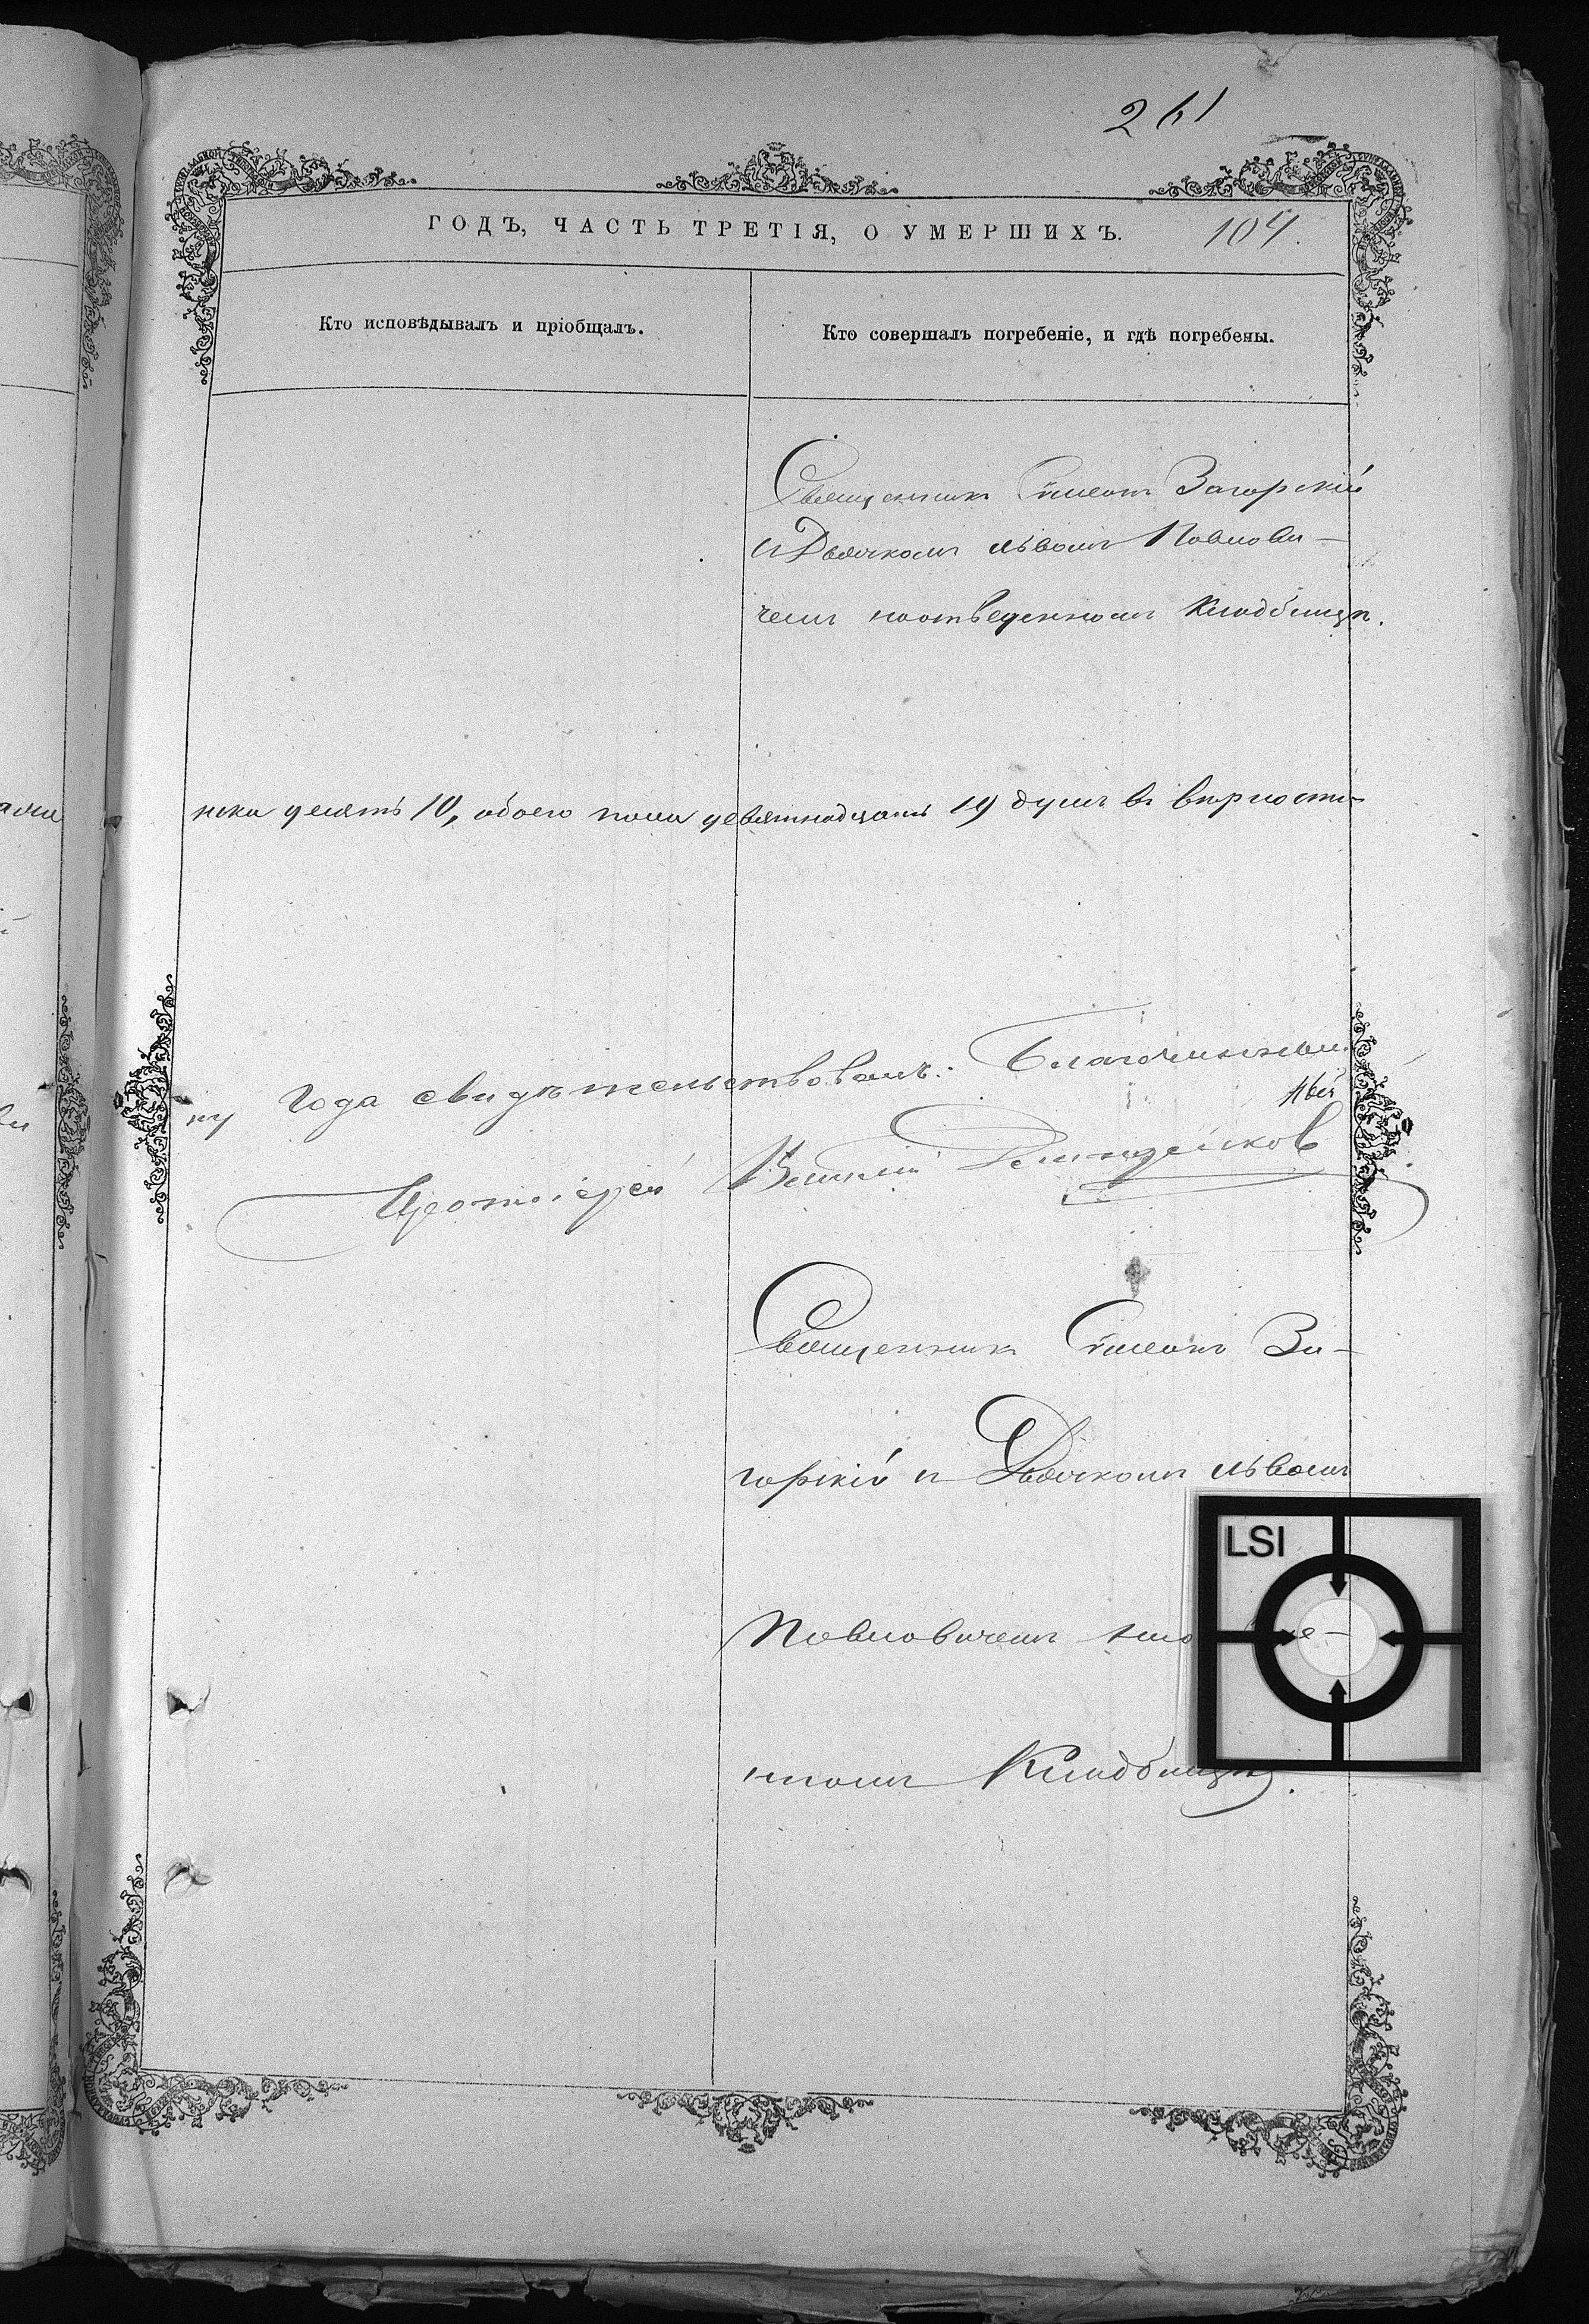 261
ГОДЪ, ЧАСТЬ ТРЕТІЯ, О УМЕРШИХЪ. 104.
Кто исповѣдывалъ и пріобщалъ.
Кто совершалъ погребеніе, и гдѣ погребены.
Священникъ Симеонъ Загорскій
и Дьячкомъ Львомъ Павлови-
чемъ на отведенномъ Кладбищѣ.
нска десять 10, обоего пола девятнадцать 19 душъ въ вѣрности
ну года свидѣтельствовалъ: Благочинный
Протоіерей
Священникъ Симеонъ За-
горскій и Дьячкомъ Львомъ
Павловичемъ
номъ Кладбищѣ.
LSI